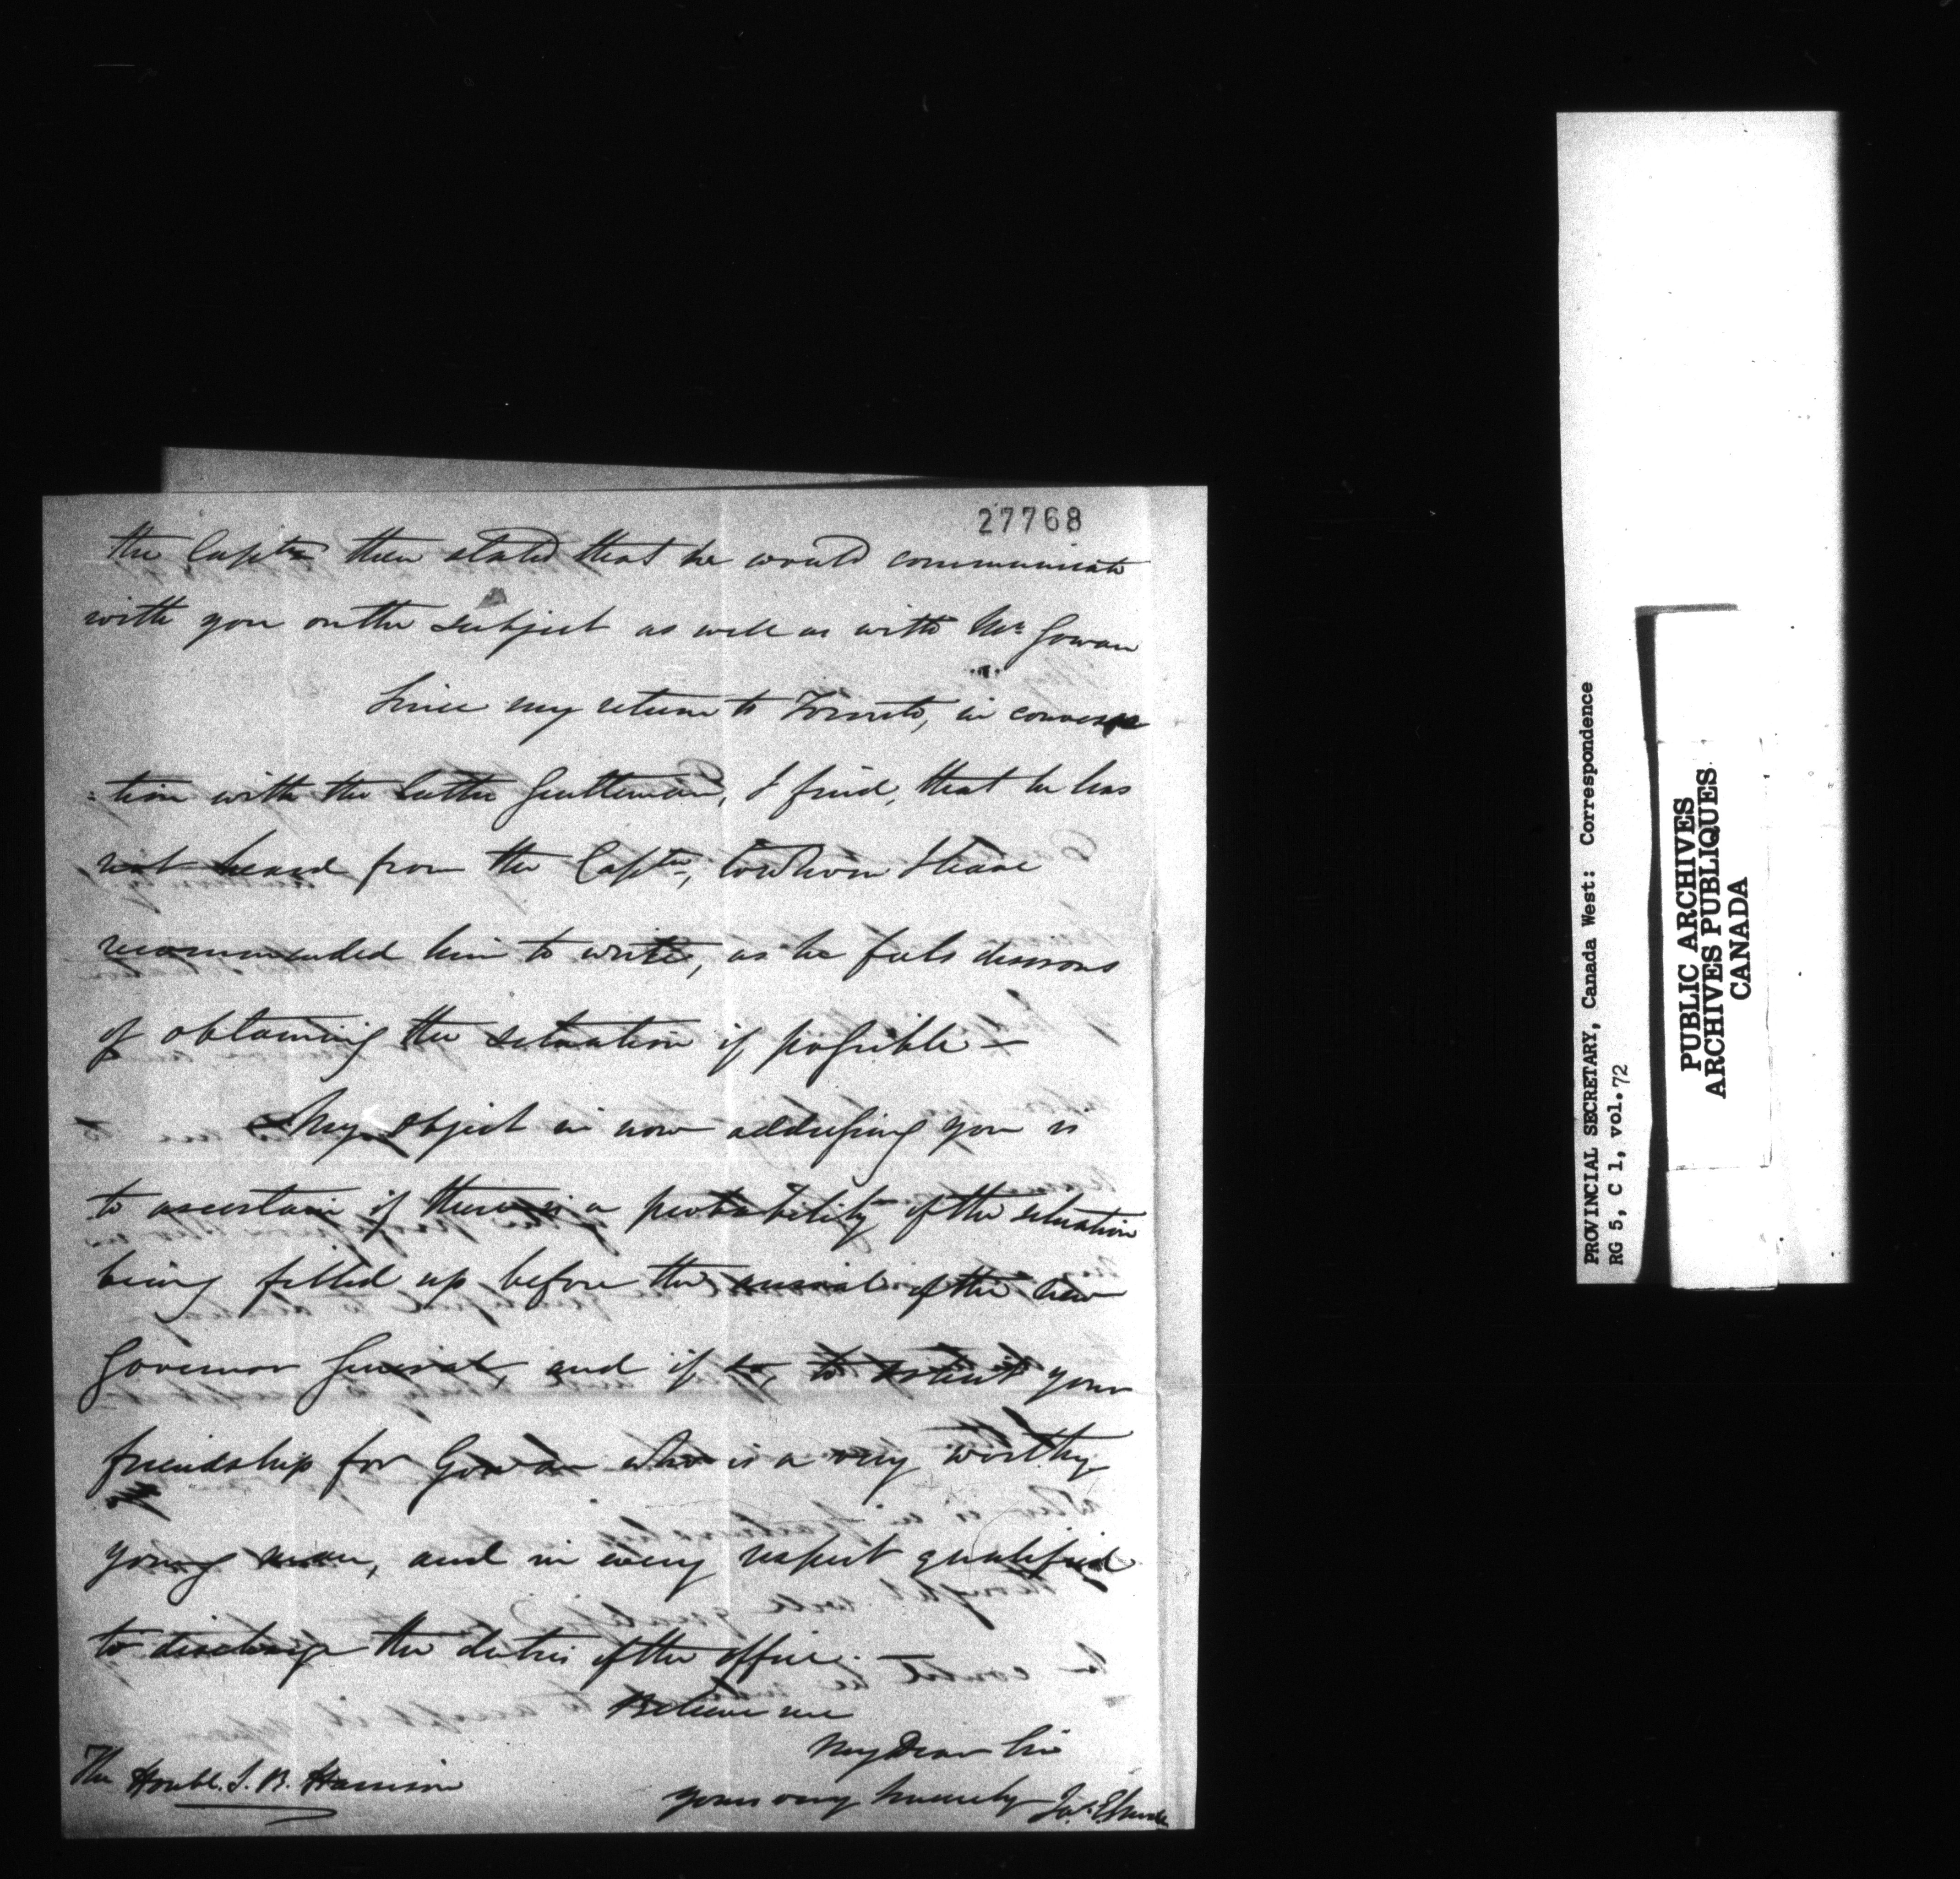 27768
the Captn then stated that he would communicate
with you on the subject as well as with Mr Gowan
Since my return to Toronto, in conversa
:tion with the latter Gentleman, I find, that he has
not heard from the Captn, to whom I have
recommended him to write, as he feels desirous
of obtaining the situation if possible —
My object in now addressing you is
to ascertain if there is a probability of the situation
being filled up before the arrival of the new
Governor General, and if so, to your
friendship for Gowan who is a very worthy
young man, and in every respect qualified
to discharge the duties of the office. —
Believe me
My Dear Sir
Yours very sincerely Jas. E. Small
The Honble. S. B. Harrison
PROVINCIAL SECRETARY, Canada West: Correspondence
RG 5, C 1, vol.72
PUBLIC ARCHIVES
ARCHIVES PUBLIQUES
CANADA